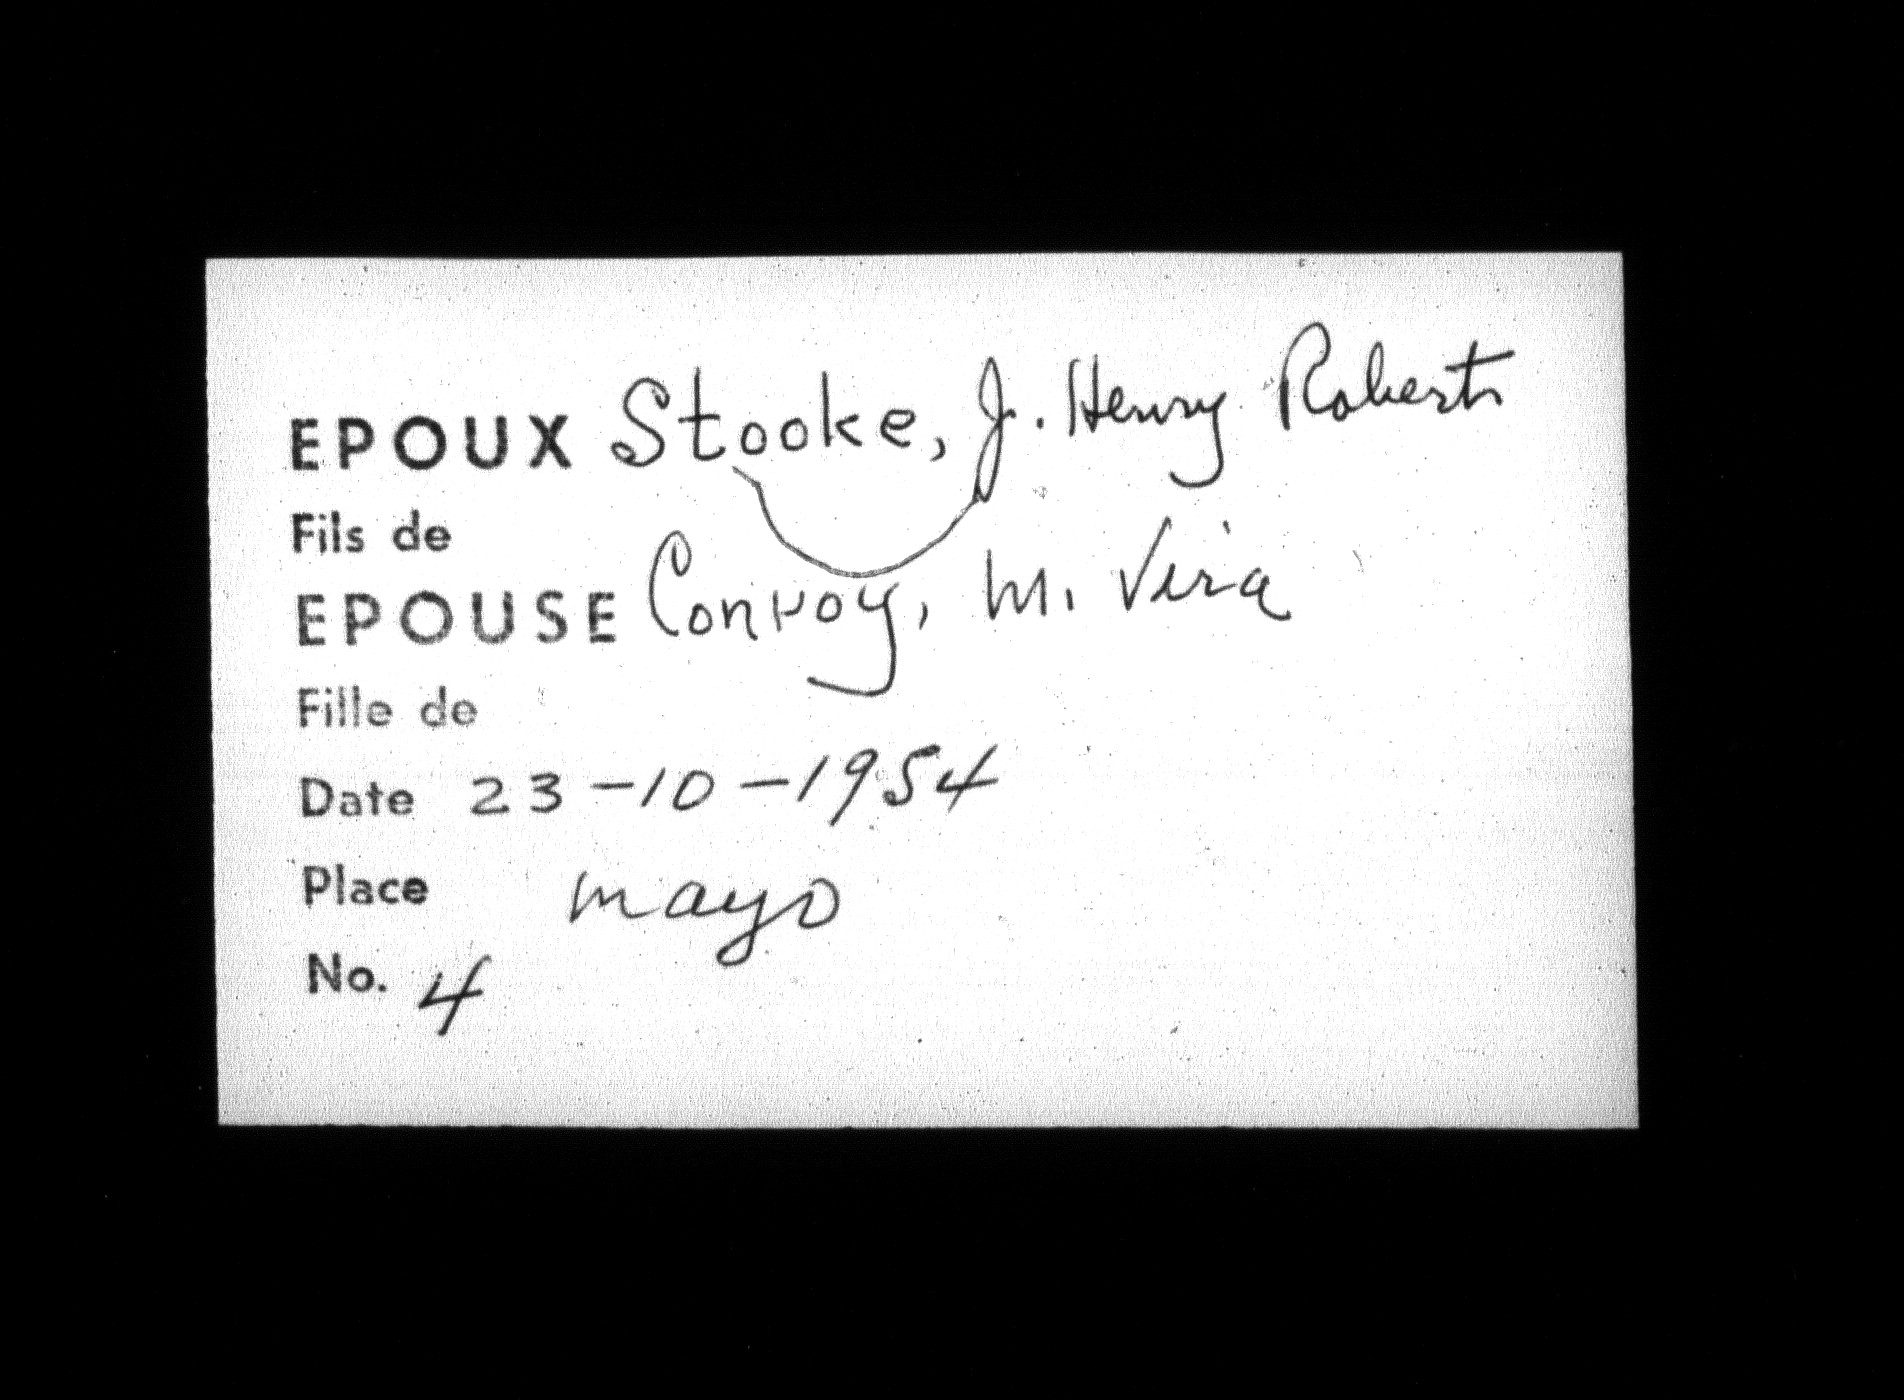 EPOUX Stooke, J. Henry Roberts
Fils de
EPOUSE Convoy, M. Vera
Fille de
Date 23-10-1954
Place mayo
No. 4